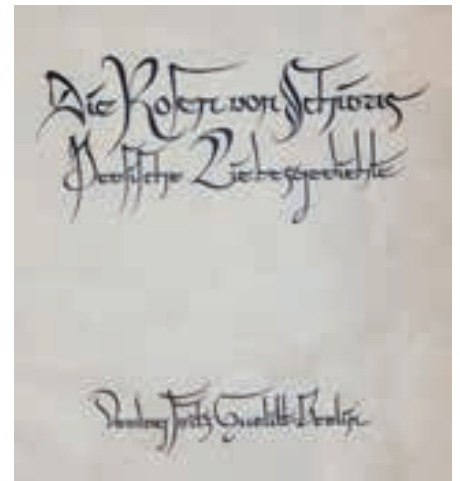 Die Rosen von Schiras
Persische Liebesgedichte
Verlag Fritz Gurlitt Berlin